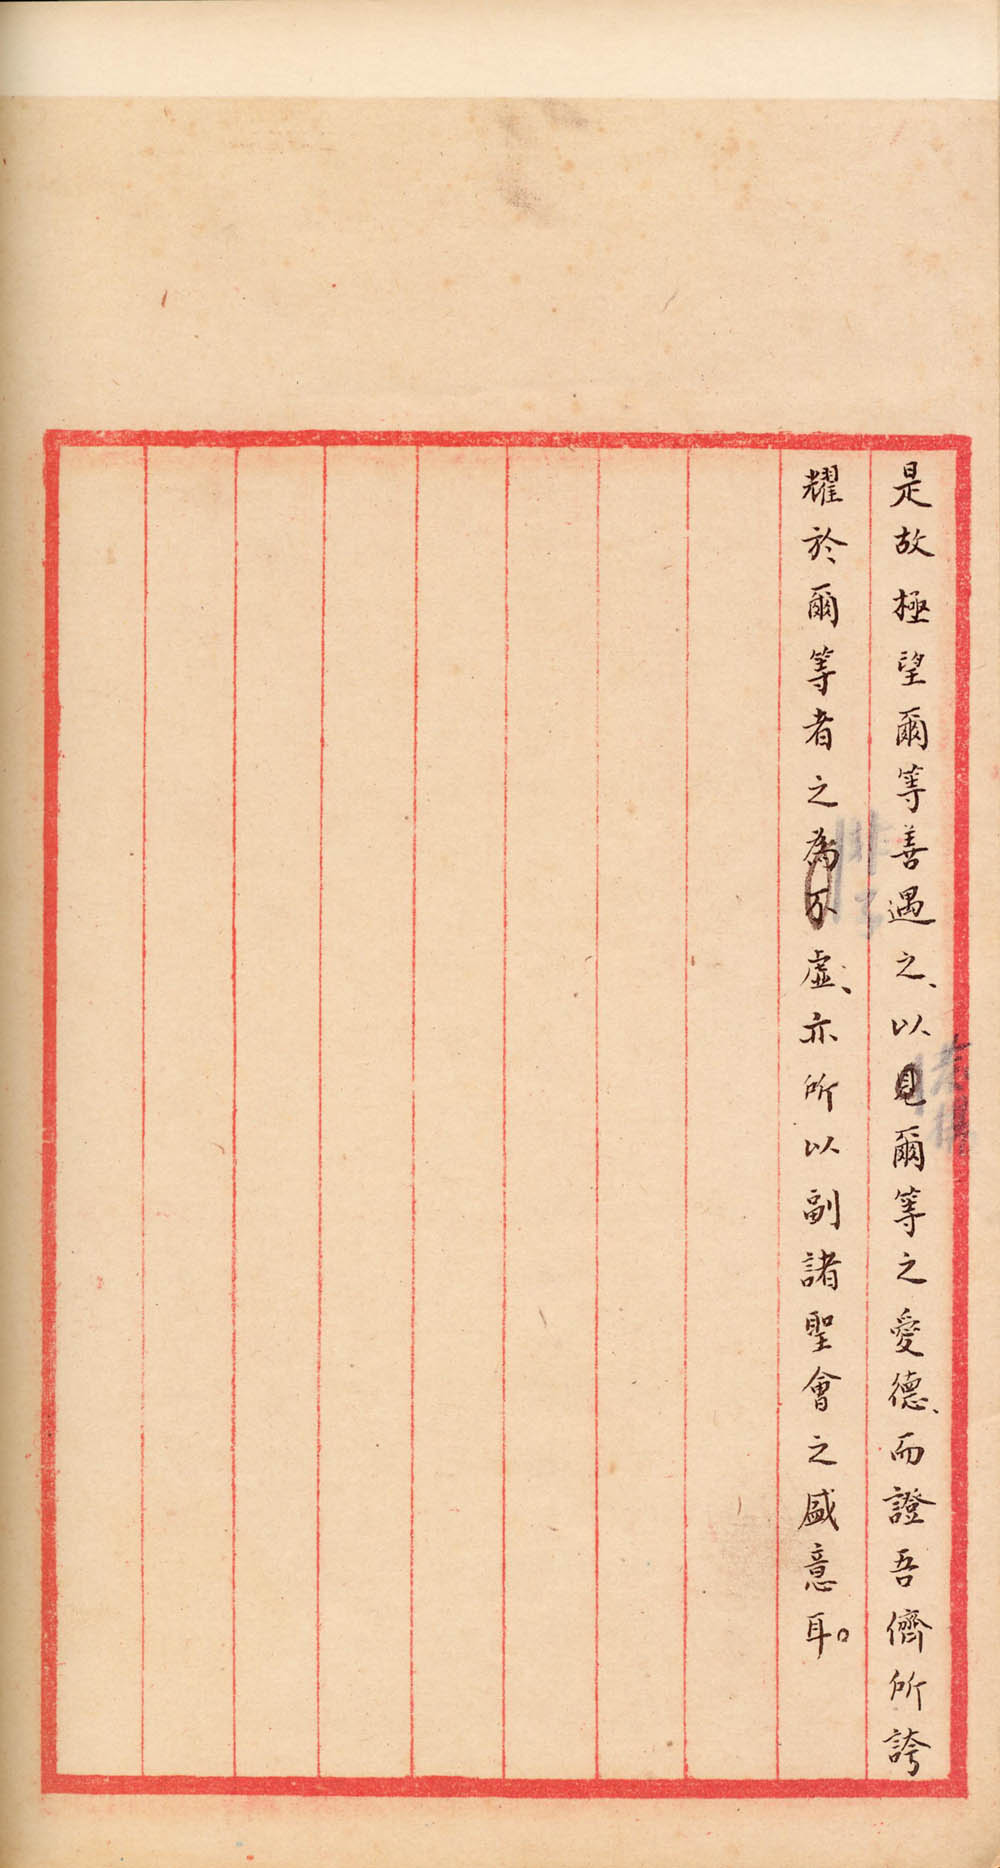 是故極望爾等善遇之、以見爾等之愛德、而證吾儕所誇
耀於爾等者之為不虛、亦所以副諸聖會之盛意耳。